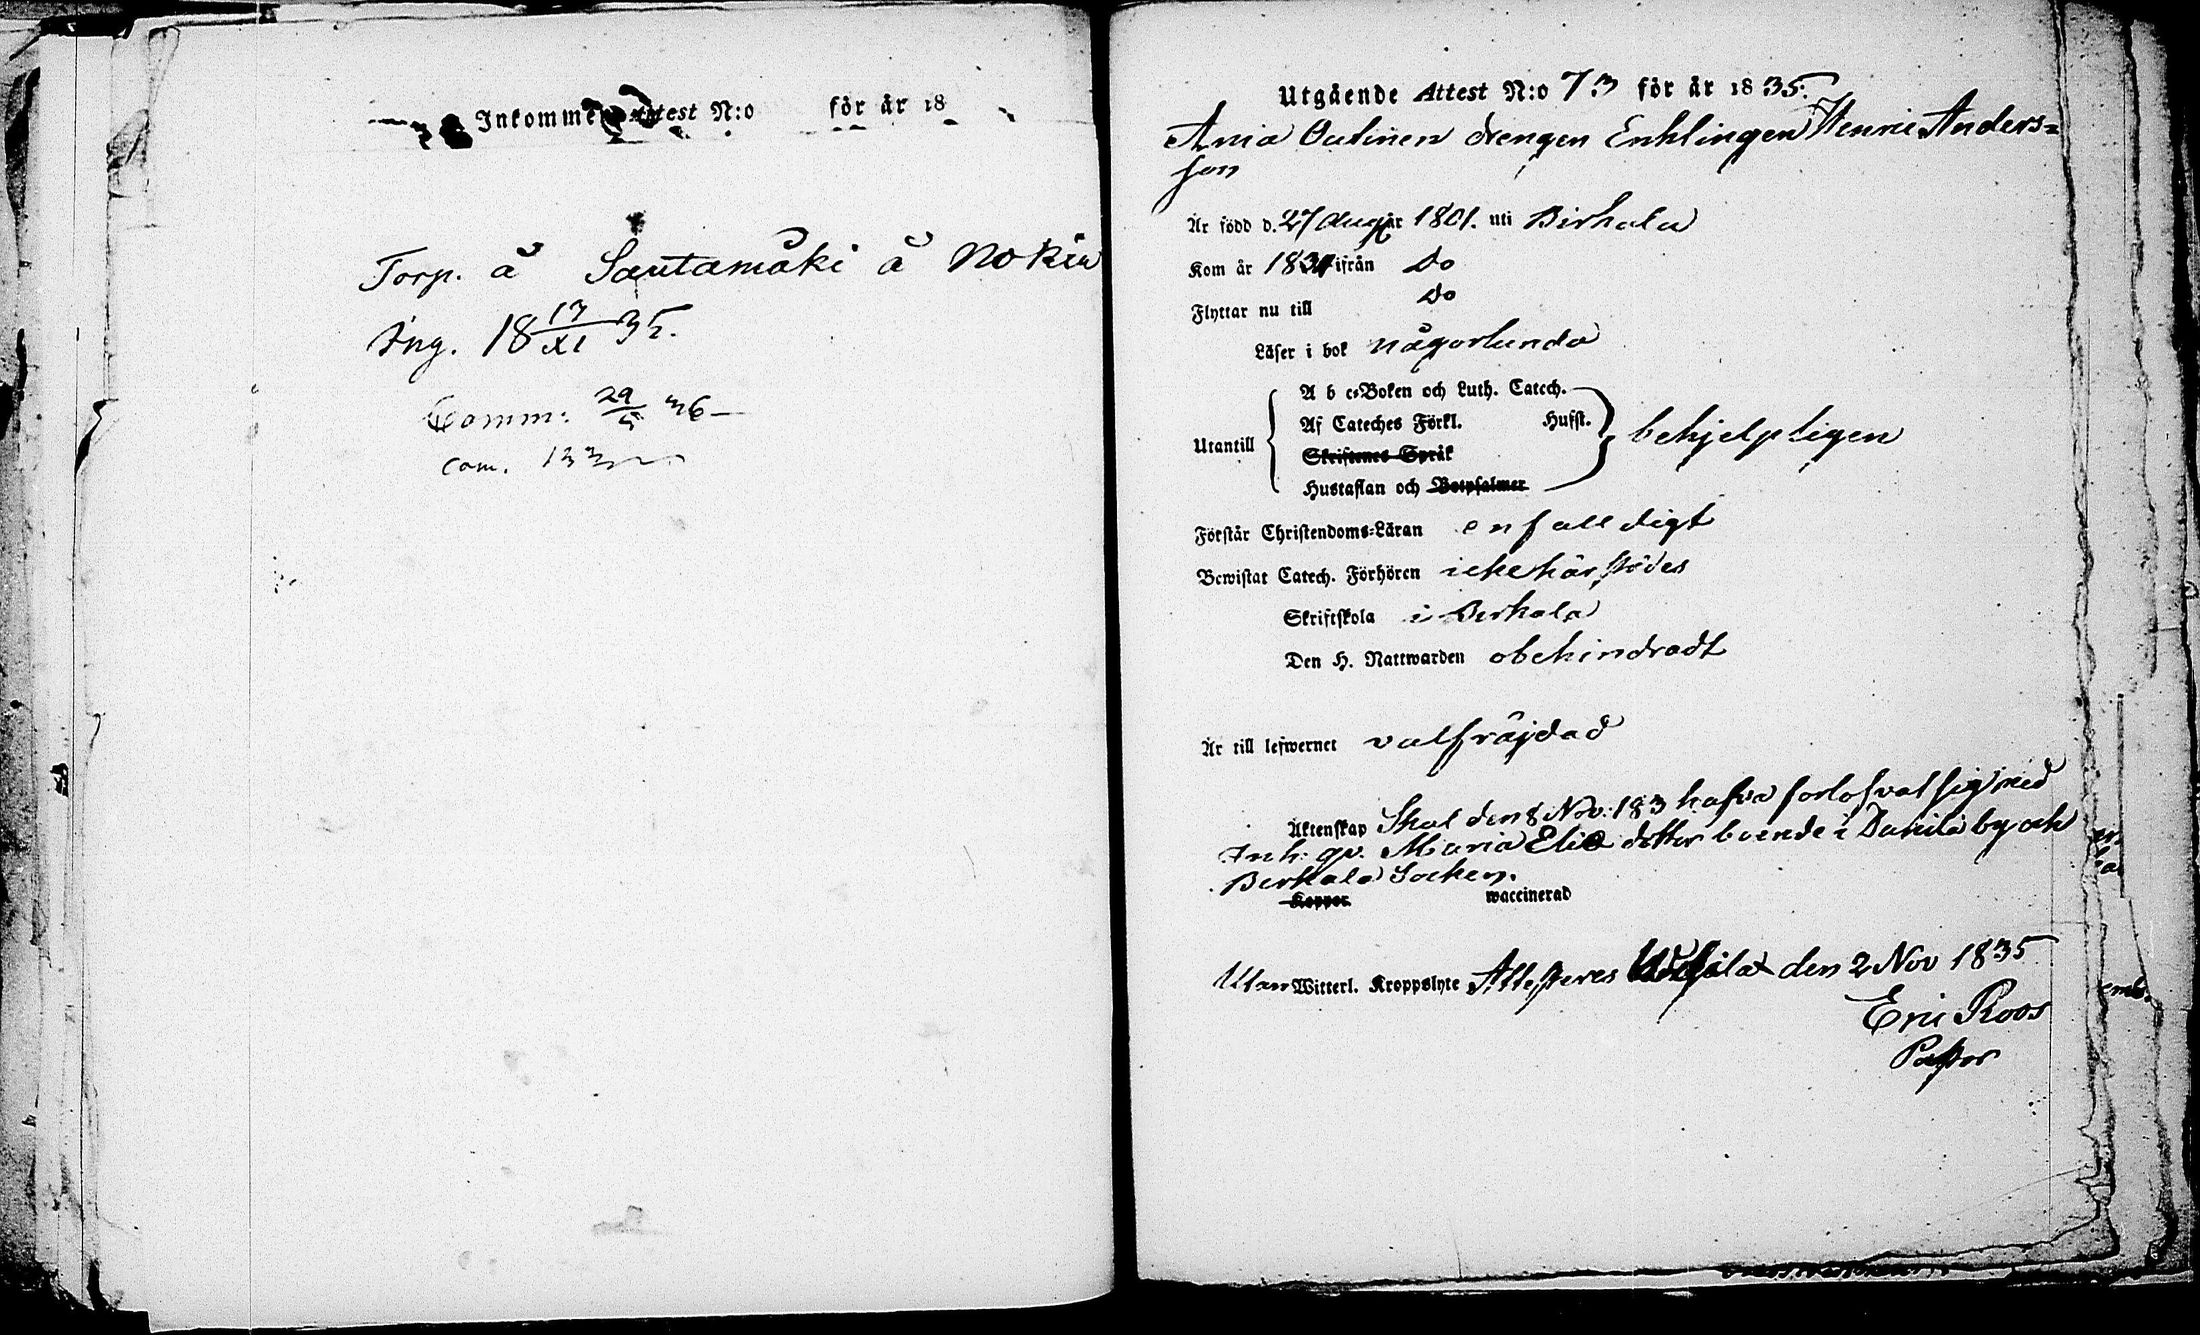 Inkommen Attest N:o för år 18
Torp. å Santamäki å Nokia
Ing. 18 13/XI 35.
Comm: 29/5 36 —
com. 133
Utgående Attest N:o 73 för år 1835.
drengen Enklingen Henric Anders=
son
Är född d. 27 Aug år 1801. uti Birkala
Kom år 183 ifrån Do
Flyttar nu till Do
Läser i bok någorlunda
A b c=Boken och Luth. Catech.
Af Cateches Förkl. Hufst.
Utantill behjelpligen
Skriftenes Språk
Hustaflan och Botpsalmer
Förstår Christendoms=Läran enfalldigt
Bewistat Catech. Förhören icke härstädes
Skriftskola i Birkala
Den H. Nattwarden obehindradt
Är till lefwernet välfräjdad
Äktenskap Skal den 8 Nov: 183 hafva förlofvat sig med
Inh. qv. Maria Elia dotter boende i by och
Birkala Socken.
Koppor waccinerad
Utan Witterl. Kroppslyte Attesteres den 2 Nov 1835
Eric Roos
Pastor